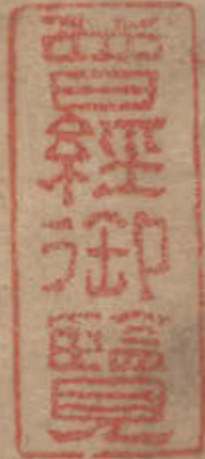 曾經御覽